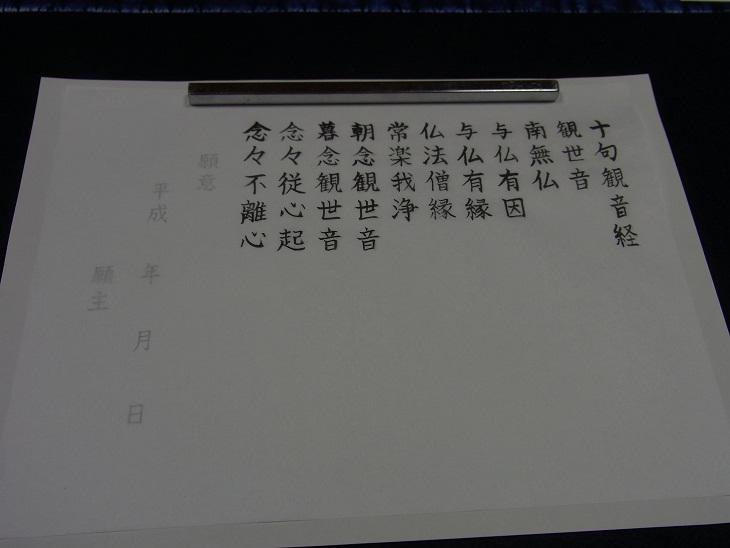 十句観音経
観世音
南無仏
与仏有因
与仏有縁
仏法僧縁
常楽我浄
朝念観世音
暮念観世音
念々従心起
念々不離心
願意
平成 年 月 日
願主